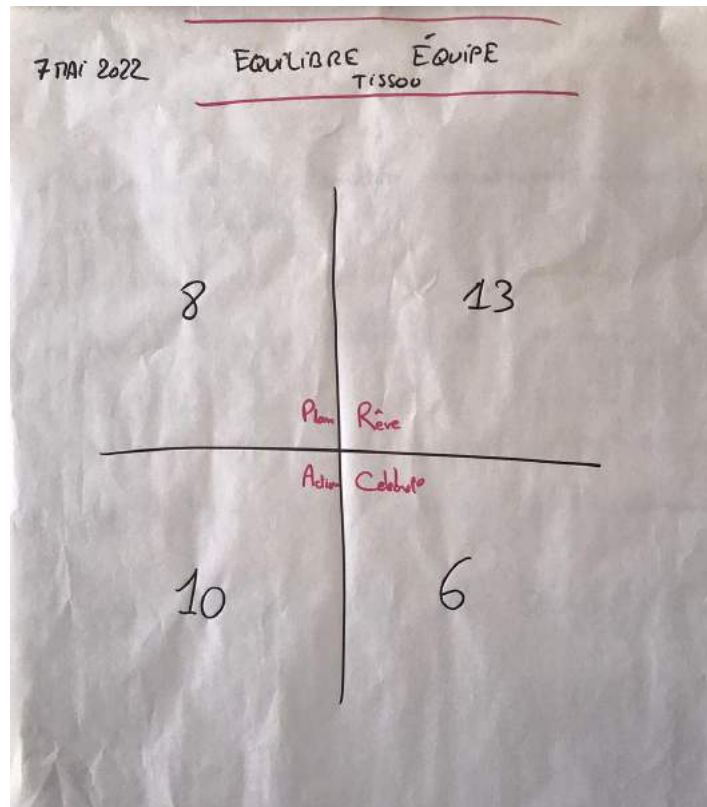 7 MAi 2022
EQUiLiBRE ÉQUiPE
TiSSOU
8
13
Plan
Rêve
Action
10
6